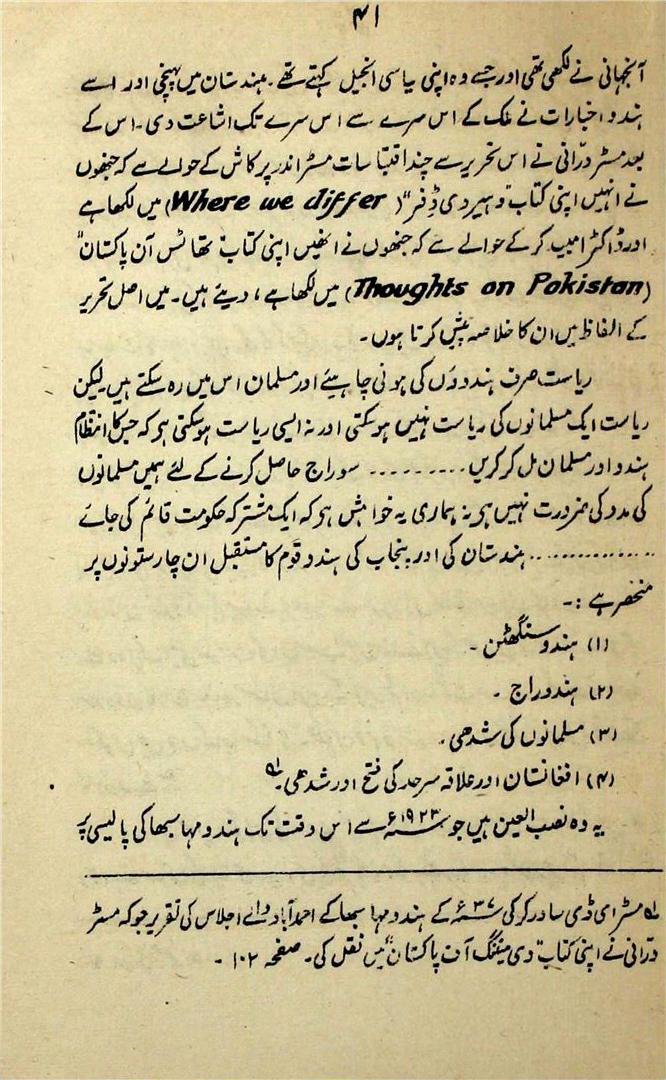 ۴۱
آنجہانی نے لکھی تھی اور جسے وہ اپنی سیاسی انجیل کہتے تھے۔ ہندستان میں پہنچی اور اسے
ہندو اخبارات نے ملک کے اس سرے سے اس سرے تک اشاعت دی۔ اس کے
بعد مسٹر درّانی نے اس تحریر سے چند اقتباسات مسٹر اندر پرکاش کے حوالے سے کہ جنھوں
نے انہیں اپنی کتاب "وہیر وی ڈِفر" (Where we differ) میں لکھا ہے
اور ڈاکٹر امبیدکر کے حوالے سے کہ جنھوں نے انھیں اپنی کتاب "تھاٹس آن پاکستان"
(Thoughts on Pakistan) میں لکھا ہے، دیئے ہیں۔ میں اصل تحریر
کے الفاظ میں ان کا خلاصہ پیش کرتا ہوں۔
ریاست صرف ہندوؤں کی ہونی چاہیئے اور مسلمان اس میں رہ سکتے ہیں لیکن
ریاست ایک مسلمانوں کی ریاست نہیں ہو سکتی اور نہ ایسی ریاست ہو سکتی ہے کہ جس کا انتظام
ہندو اور مسلمان مل کر کریں ......... سوراج حاصل کرنے کے لئے ہمیں مسلمانوں
کی مدد کی ضرورت نہیں ہے نہ ہماری یہ خواہش ہے کہ ایک مشترکہ حکومت قائم کی جائے
.............. ہندستان کی اور پنجاب کی ہندو قوم کا مستقبل ان چار ستونوں پر
منحصر ہے :۔
(۱) ہندو سنگھٹن ۔
(۲) ہندو راج ۔
(۳) مسلمانوں کی شدھی ۔
(۴) افغانستان اور علاقہ سرحد کی فتح اور شدھی۔ لہ
یہ وہ نصب العین ہیں جو ۱۹۲۳ء سے اس وقت تک ہندو مہا سبھا کی پالیسی پر
لہ مسٹر ای ڈی ساورکر کی ۳۷ء کے ہندو مہا سبھا کے احمد آباد والے اجلاس کی تقریر جو کہ مسٹر
درّانی نے اپنی کتاب "دی میننگ آف پاکستان" میں نقل کی۔ صفحہ ۱۰۲ ۔